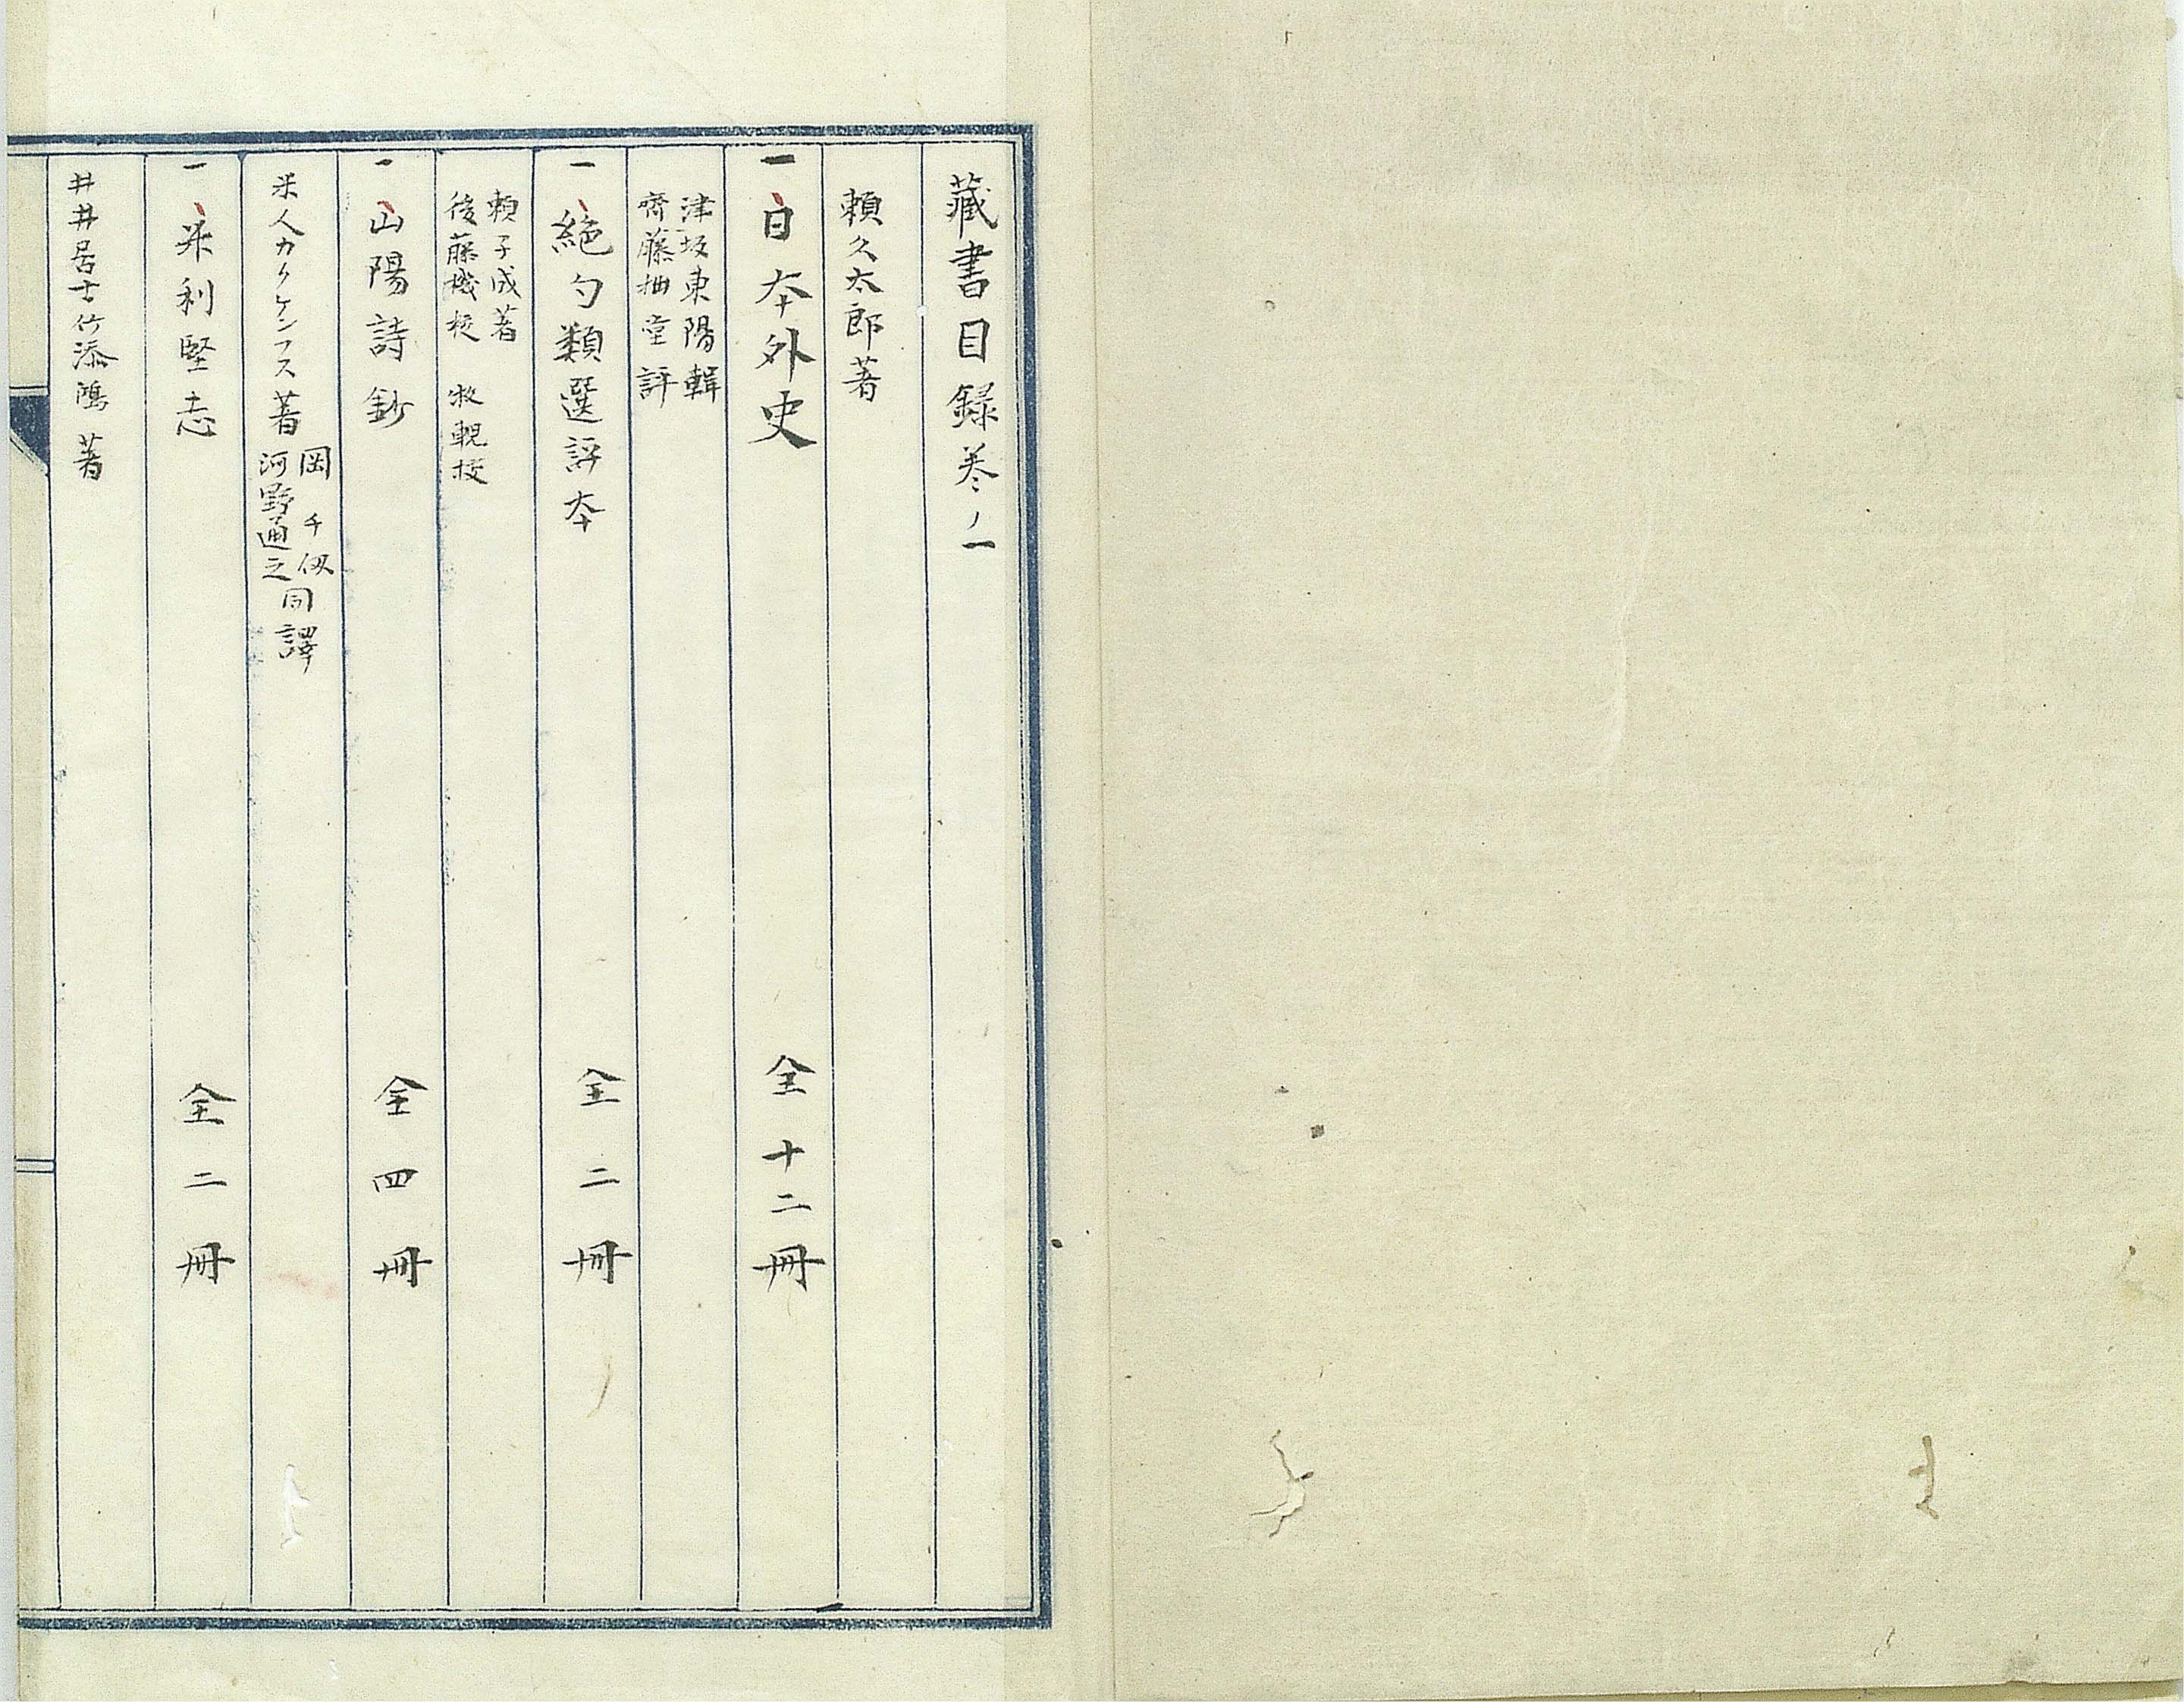 藏書目録巻ノ一
頼久太郎著
一日本外史 全十二冊
津坂東陽輯
齊藤拙堂評
一絶句類選評本 全二冊
頼子成著
後藤機校 牧輗校
一山陽詩鈔 全四冊
米人カクケンブス著 岡千仭 河野通之 同譯
一米利堅志 全二冊
井井居士竹添鴻著